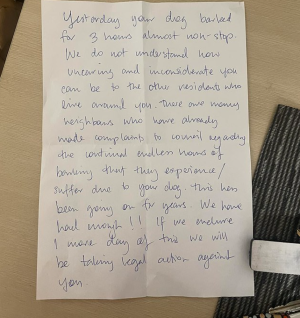 Yesterday your dog barked
for 3 hours almost non-stop.
We do not understand how
uncaring and inconsiderate you
can be to the other residents who
live around you. There are many
neighbours who have already
made complaints to council regarding
the continual endless hours of
barking that they experience/
suffer due to your dog. This has
been going on for years. We have
had enough!! If we endure
1 more day of this we will
be taking legal action against
you